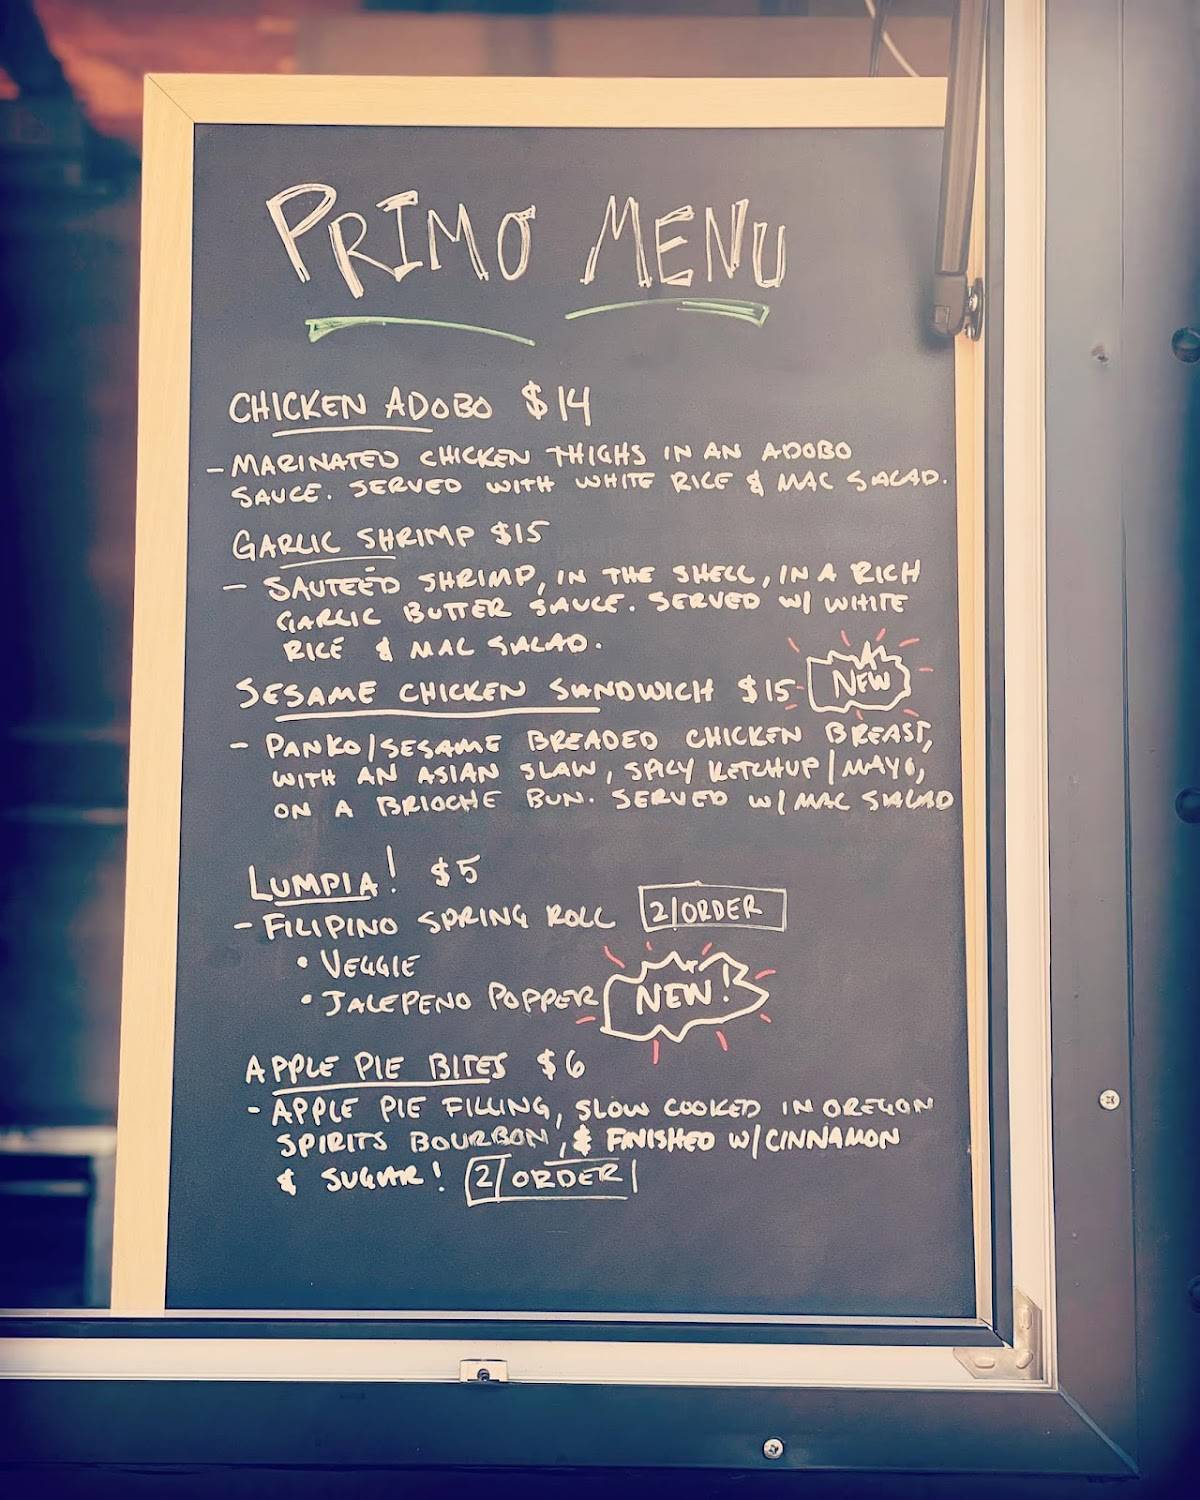 PRIMO MENU
CHICKEN ADOBO $14
- MARINATED CHICKEN THIGHS IN AN ADOBO
SAUCE. SERVED WITH WHITE RICE & MAC SALAD.
GARLIC SHRIMP $15
- SAUTEED SHRIMP, IN THE SHELL, IN A RICH
GARLIC BUTTER SAUCE. SERVED W/ WHITE
RICE & MAC SALAD.
SESAME CHICKEN SANDWICH $15 NEW
- PANKO/SESAME BREADED CHICKEN BREAST,
WITH AN ASIAN SLAW, SPICY KETCHUP/MAYO,
ON A BRIOCHE BUN. SERVED W/ MAC SALAD
LUMPIA! $5
- FILIPINO SPRING ROLL 2/ORDER
• VEGGIE
• JALEPENO POPPER NEW!
APPLE PIE BITES $6
- APPLE PIE FILLING, SLOW COOKED IN OREGON
SPIRITS BOURBON, & FINISHED W/ CINNAMON
& SUGAR! 2/ORDER